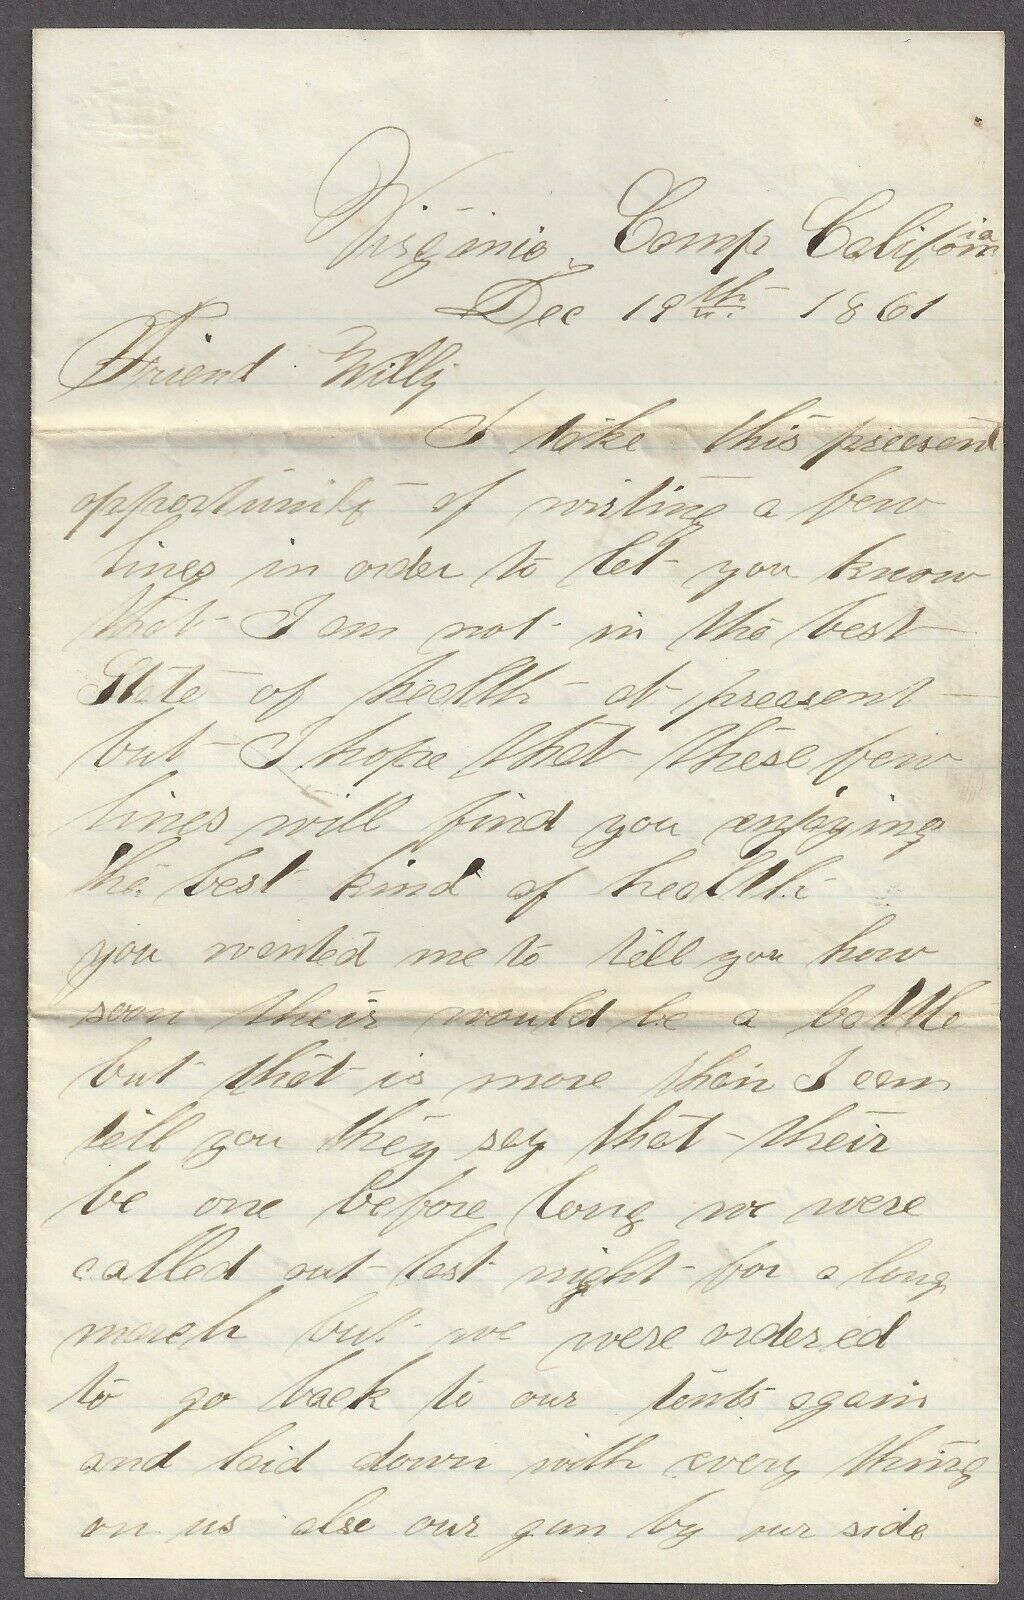 Virginia, Camp California
Dec 19th 1861
Friend Willy
I take this preesent
opportunity of wirting a few
lines in order to let you know
that I am not in the best
State of health at preasent
but I hope that these few
lines will find you enjoying
the best kind of health
you wanted me to tell you how
soon their would be a battle
but that is more than I can
tell you they say that their
be one before long we were
called out last night for a long
march but we were ordered
to go back to our tents again
and laid down with every thing
on us alse our gun by our side